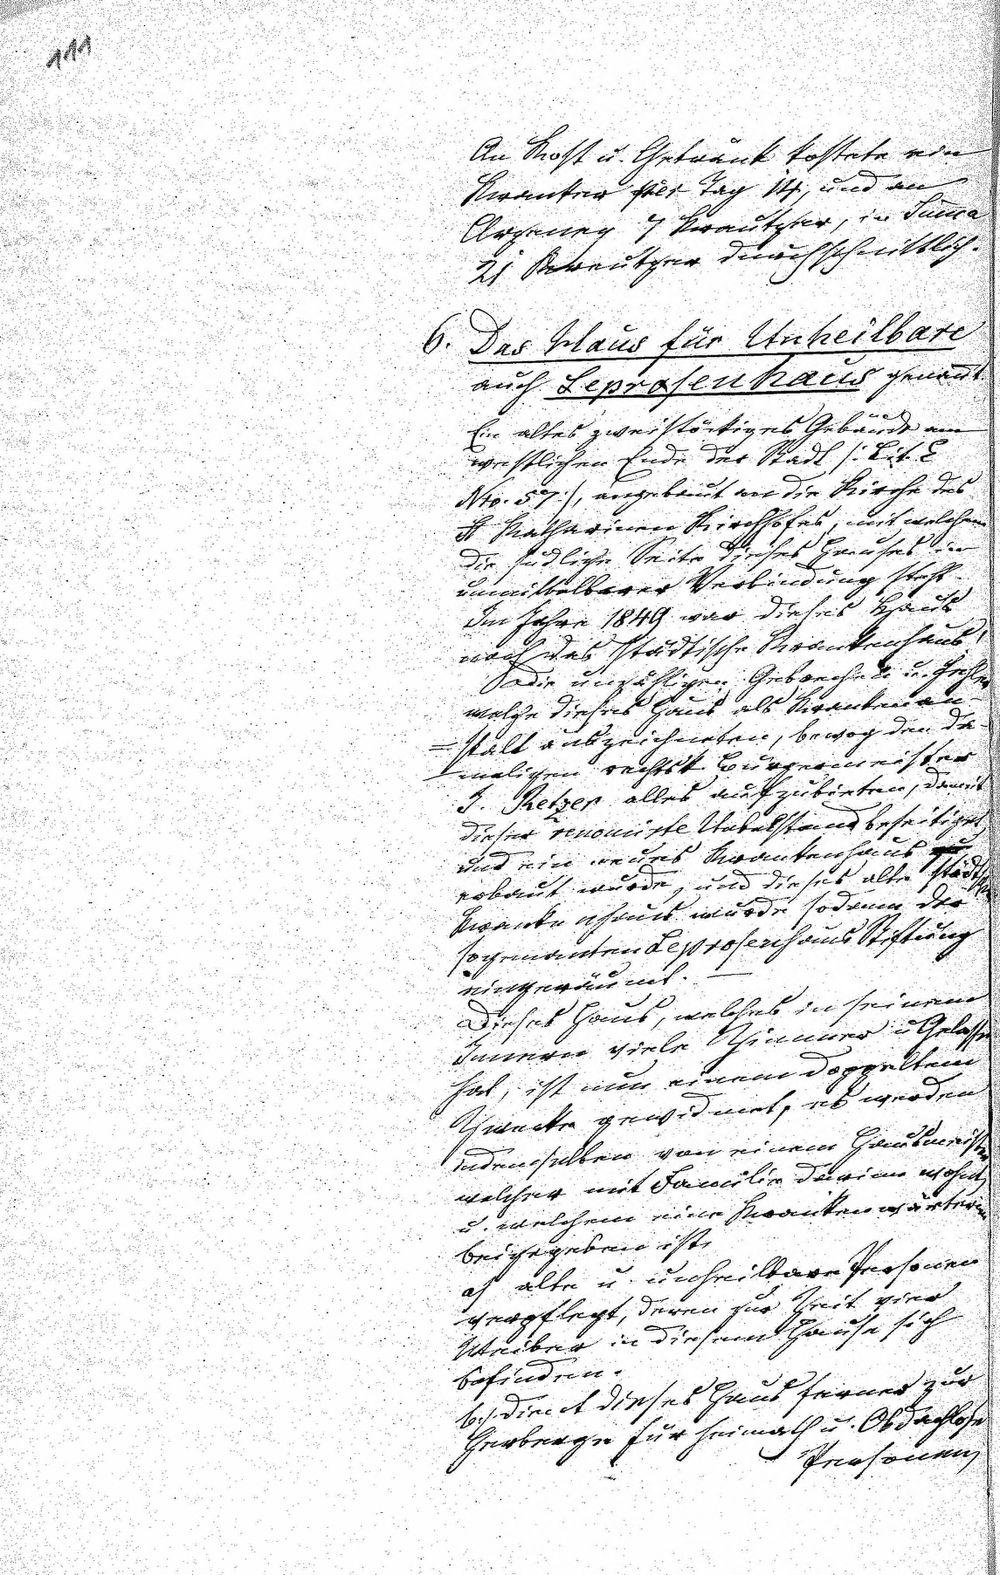 111
An Kost u. Getränk kostete ein
Kranker per Tag 14, und an
Arzeney 7 Kreutzer, in Suma
21 Kreutzer durchschnittlich.
6. Das Haus für Unheilbare
auch Leprosenhaus genannt.
Ein altes zweistöckiges Gebäude am
westlichen Ende der Stadt /: Lit. C
Nro. 57 :/, angebaut an die Kirche des
St Katharinen Kirchhofes, mit welchem
die südliche Seite dieses Hauses in
unmittelbarer Verbindung steht.
Im Jahre 1849 war dieses Haus
noch das städtische Krankenhaus!
Die unzähligen Gebrechen u. Fehler
welche dieses Haus als Krankenan-
=stalt auszeichneten, bewog den da-
maligen rechtsk. Bürgermeister
J. Retzer alles aufzubieten, damit
dieser renomirte Uebelstand beseitiget
und ein neues Krankenhaus
erbaut wurde, und dieses alte städtische
Krankenhaus wurde sodann der
sogenannten Leprosenhaus Stiftung
eingeräumt. —
Dieses Haus, welches in seinem
Innern viele Zimmer u Gelasse
hat, ist nun einem doppeltem
Zwecke gewidmet, es werden
indemselben von einem Hausmeister
welcher mit Familie darinn wohnt,
u. welchem eine Krankenwärterin
beigegeben ist,
a/ alte u. unheilbare Personen
verpflegt, deren zur Zeit vier
Weiber in diesem Hause sich
befinden.
b./ dient dieses Haus ferner zur
Herberge für heimath u. Obdachlose
Personen,